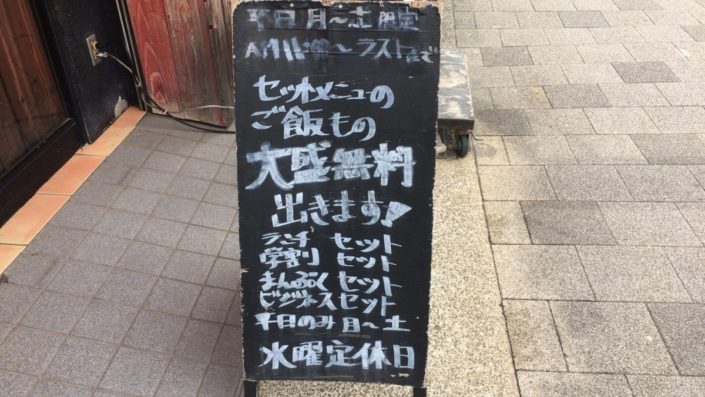 平日 月～土 限定
AM11:00～ラストまで
セットメニューの
ご飯もの
大盛無料
出きます!
ランチ セット
学割 セット
まんぷく セット
ビジネスセット
平日のみ月～土
水曜定休日